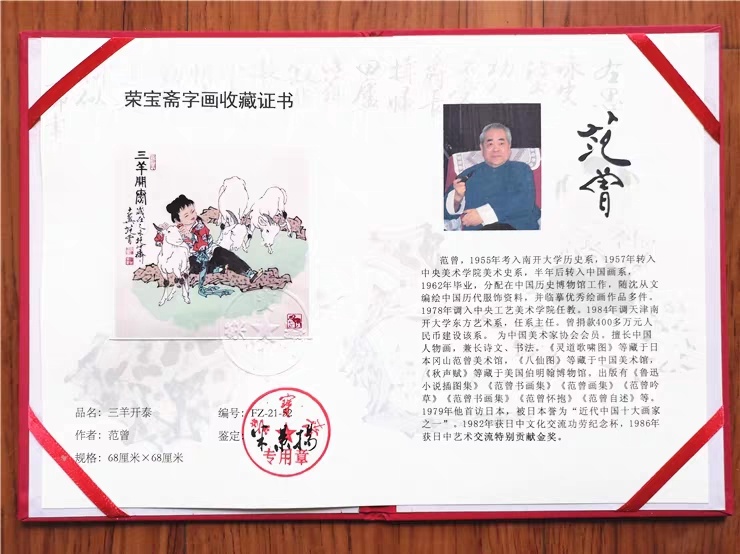 荣宝斋字画收藏证书
三羊開泰
品名：三羊开泰
作者：范曾
规格：68厘米×68厘米
编号：FZ-21-
鉴定：
专用章
范曾
范曾，1955年考入南开大学历史系，1957年转入
中央美术学院美术史系，半年后转入中国画系，
1962年毕业，分配在中国历史博物馆工作，随沈从文
编绘中国历代服饰资料，并临摹优秀绘画作品多件。
1978年调入中央工艺美术学院任教。1984年调天津南
开大学东方艺术系，任系主任。曾捐款400多万元人
民币建设该系。 为中国美术家协会会员。擅长中国
人物画，兼长诗文、书法。《灵道歌啸图》等藏于日
本冈山范曾美术馆，《八仙图》等藏于中国美术馆，
《秋声赋》等藏于美国伯明翰博物馆。出版有《鲁迅
小说插图集》《范曾书画集》《范曾画集》《范曾吟
草》《范曾书画集》《范曾怀抱》《范曾自述》等。
1979年他首访日本，被日本誉为“近代中国十大画家
之一”。1982年获日中文化交流功劳纪念杯，1986年
获日中艺术交流特别贡献金奖。